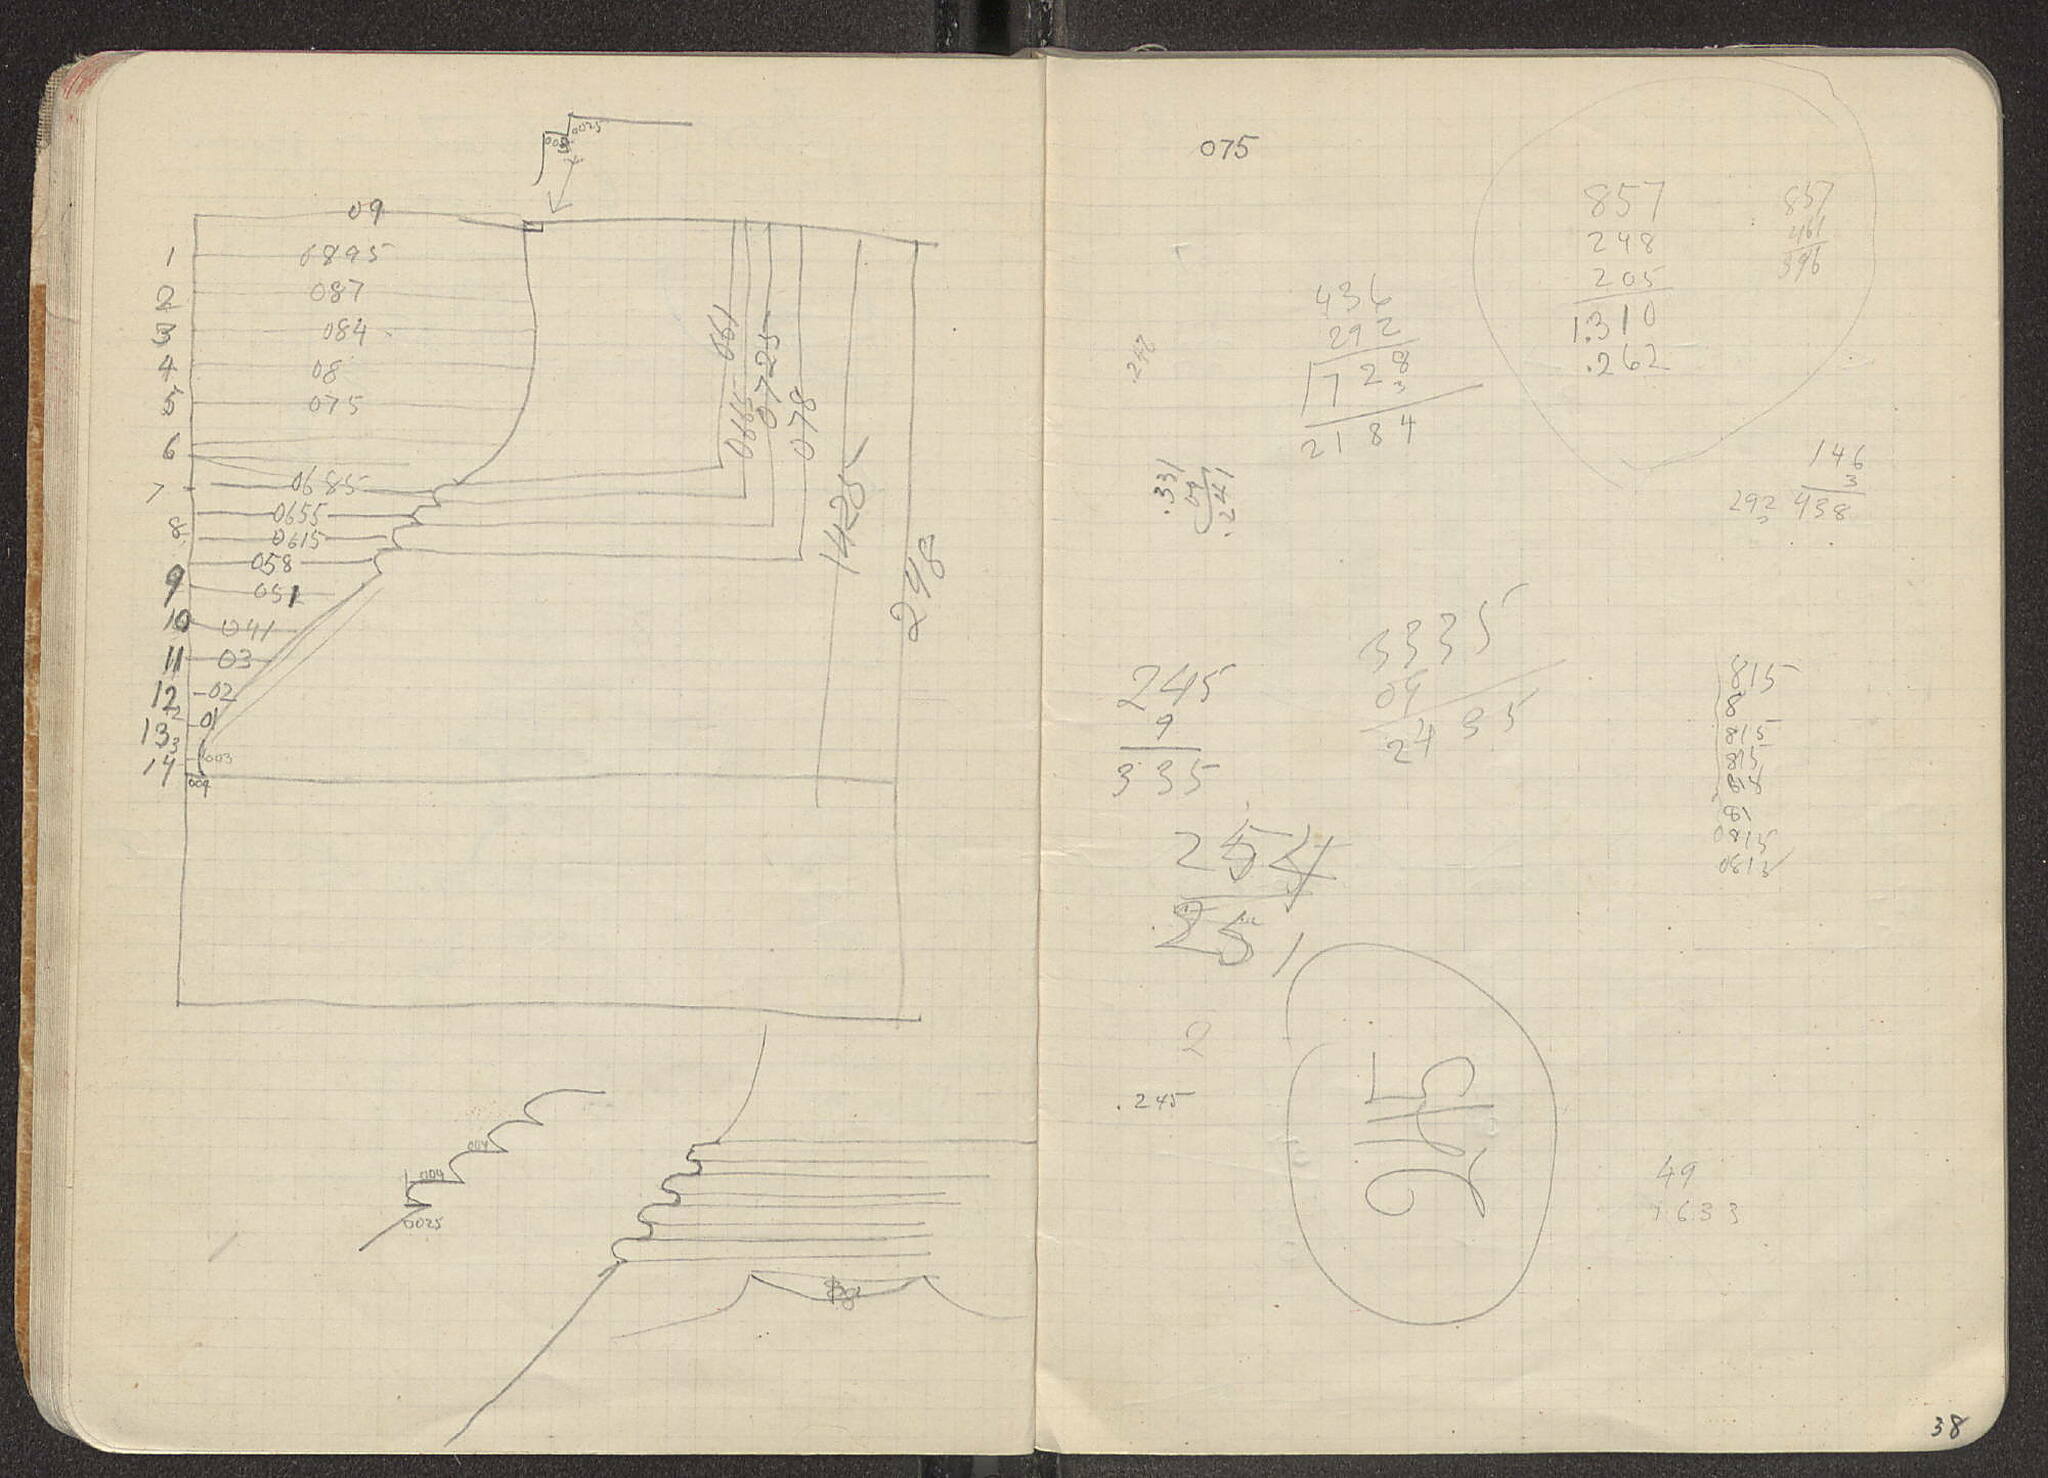 0025
09
1 0895
2 087
3 084
4 08
5 075
6
7 0685
0655
8 0615
058
9 051
10 041
11 03
12 02
01
13
003
14
009
061
0665
0725
078
1425
298
004
004
0025
075
857
248
205
1.310
.262
857
461
396
436
292
728
3
2184
.242
.331
09
.241
146
3
292 438
3335
09
2435
245
9
335
815
8
815
815
81
0815
0813
254
251
2
.245
245
49
1633
38